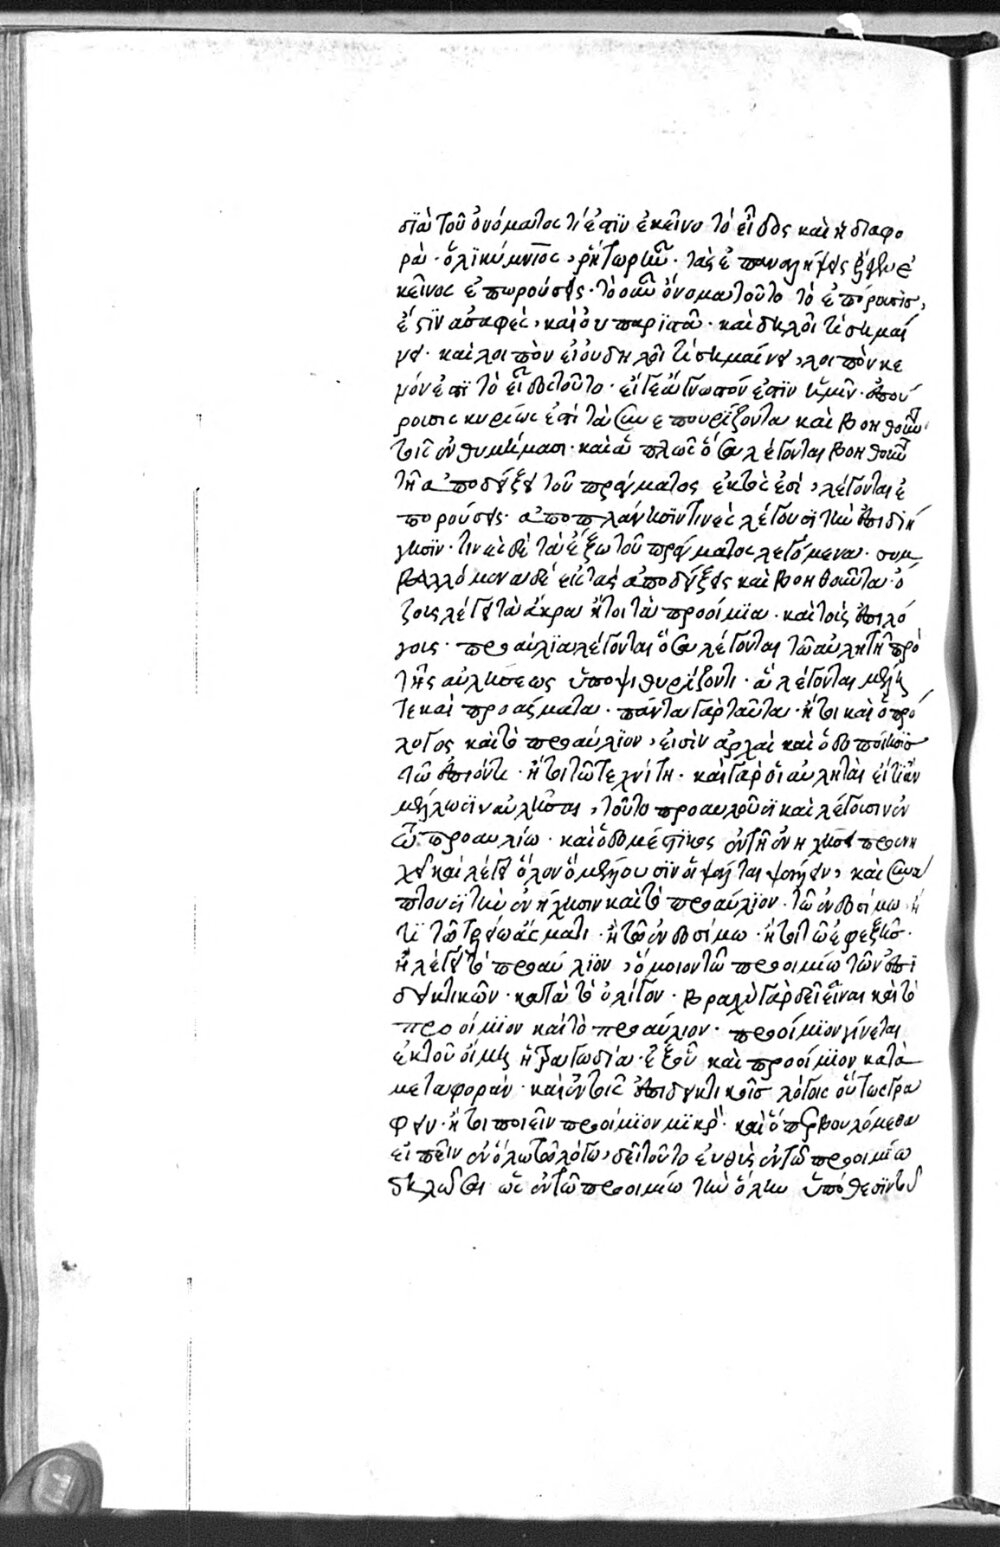 σία τοῦ ὀνόματος τί ἐστϊν ἐκεῖνο τὸ εἶδος καὶ ἡ διαφο
ρά · ὁ λϊκύμνϊος, ῥητωρ ἦν · τὰς ἐπαναλήψεις ἔλεγεν
κεῖνος ἐπωρούσεις · τὸ οὖν ὄνομα τοῦτο τὸ ἐπόρουσις,
ἐςϊν ἀσαφὲς, καὶ οὐ παρϊστᾶ · καὶ δηλοῖ τί σημαί
νει · καὶ λοιπὸν εἰ οὐ δηλοῖ τί σημαίνει, λοιπὸν κε
νόν ἐστϊ τὸ εἶδος τοῦτο · εἴτε ἄγνωστόν ἐστϊν ἡμῖν · ἐπού
ρωσις κυρίως ἐπὶ τὰ συνεπουρίζοντα καὶ βοηθοῦντα
τοῖς ἐνθυμήμασι · καὶ ἁπλῶς ὅσα λέγονται βοηθοῦντα
τῆ ἀποδείξει τοῦ πράγματος ἐκτός ἐσϊ, λέγονται ἐ
πορούσεις · ἀποπλάνησϊν τινὲς λέγουσϊ τὴν ἐπιδιή
γησϊν · τινὲς δὲ τὰ ἔξω τοῦ πράγματος λεγόμενα · συμ
βαλλόμενα δὲ εἰς τὰς ἀποδείξεις καὶ βοηθοῦντα · ὄ
ζους λέγει τὰ ἄκρα ἤτοι τὰ προοίμϊα · καὶ τοὺς ἐπιλό
γους · προαύλϊα λέγονται ὅσα λέγονται τῶ αὐλητῆ πρὸ
τῆς αὐλήσεως ὑποψιθυρίζοντι · ἃ λέγονται μέλη
τε καὶ προάσματα · πάντα γὰρ ταῦτα · ἤτοι καὶ ὁ πρό
λογος καὶ τὸ προαύλϊον, εἰσὶν ἀρχαὶ καὶ ὁδοποίησϊς
τῶ ἐπιόντι · ἤτοι τῶ τεχνίτη · καὶ γὰρ οἱ αὐληταὶ εἴ τι ἂν
μέλλωσϊν αὐλῆσαι, τοῦτο προαυλοῦσϊ καὶ λέγουσιν ἐν
τῶ προαυλίω · καὶ ὁ δομέστϊκος ἐν τῆ ἐνηχήσει προενη
χεῖ καὶ λέγει ὅλον ὃ μέλλουσϊν οἱ ψάλται ψάλλειν, καὶ συνά
πτουσϊ τὴν ἐνήχησιν καὶ τὸ προαύλϊον · τῶ ἐνδοσίμω · ἤ
τϊ τῶ τρίτω ἄσματι · ἢ τῶ ἐνδοσίμω · ἤτοι τῶ ἐφεξῆς ·
ἢ λέγει τὸ προαύλϊον, ὅμοιον τῶ προοιμίω τῶν ἐπϊ
δεικτικῶν · κατὰ τὸ ὀλίγον · βραχὺ γὰρ δεῖ εἶναι καὶ τὸ
προοίμϊον καὶ τὸ προαύλιον · προοίμϊον γίνεται
ἐκ τοῦ οἴμη ἡ τραγωδία · ἐξ οὗ καὶ προοίμϊον κατὰ
μεταφοράν · καὶ ἐν τοῖς ἐπιδεικτικοῖς λόγοις οὕτως γρά
φειν · ἤτοι ποιεῖν προοίμϊον μϊκρὸν · καὶ ὅπερ βουλόμεθα
εἰπεῖν ἐν ὅλω τῶ λόγω, δεῖ τοῦτο εὐθὺς ἐν τῶ προοιμίω
δηλῶσαι ὡς ἐν τῶ προοιμίω τὴν ὅλην ὑπόθεσϊν τοῦ